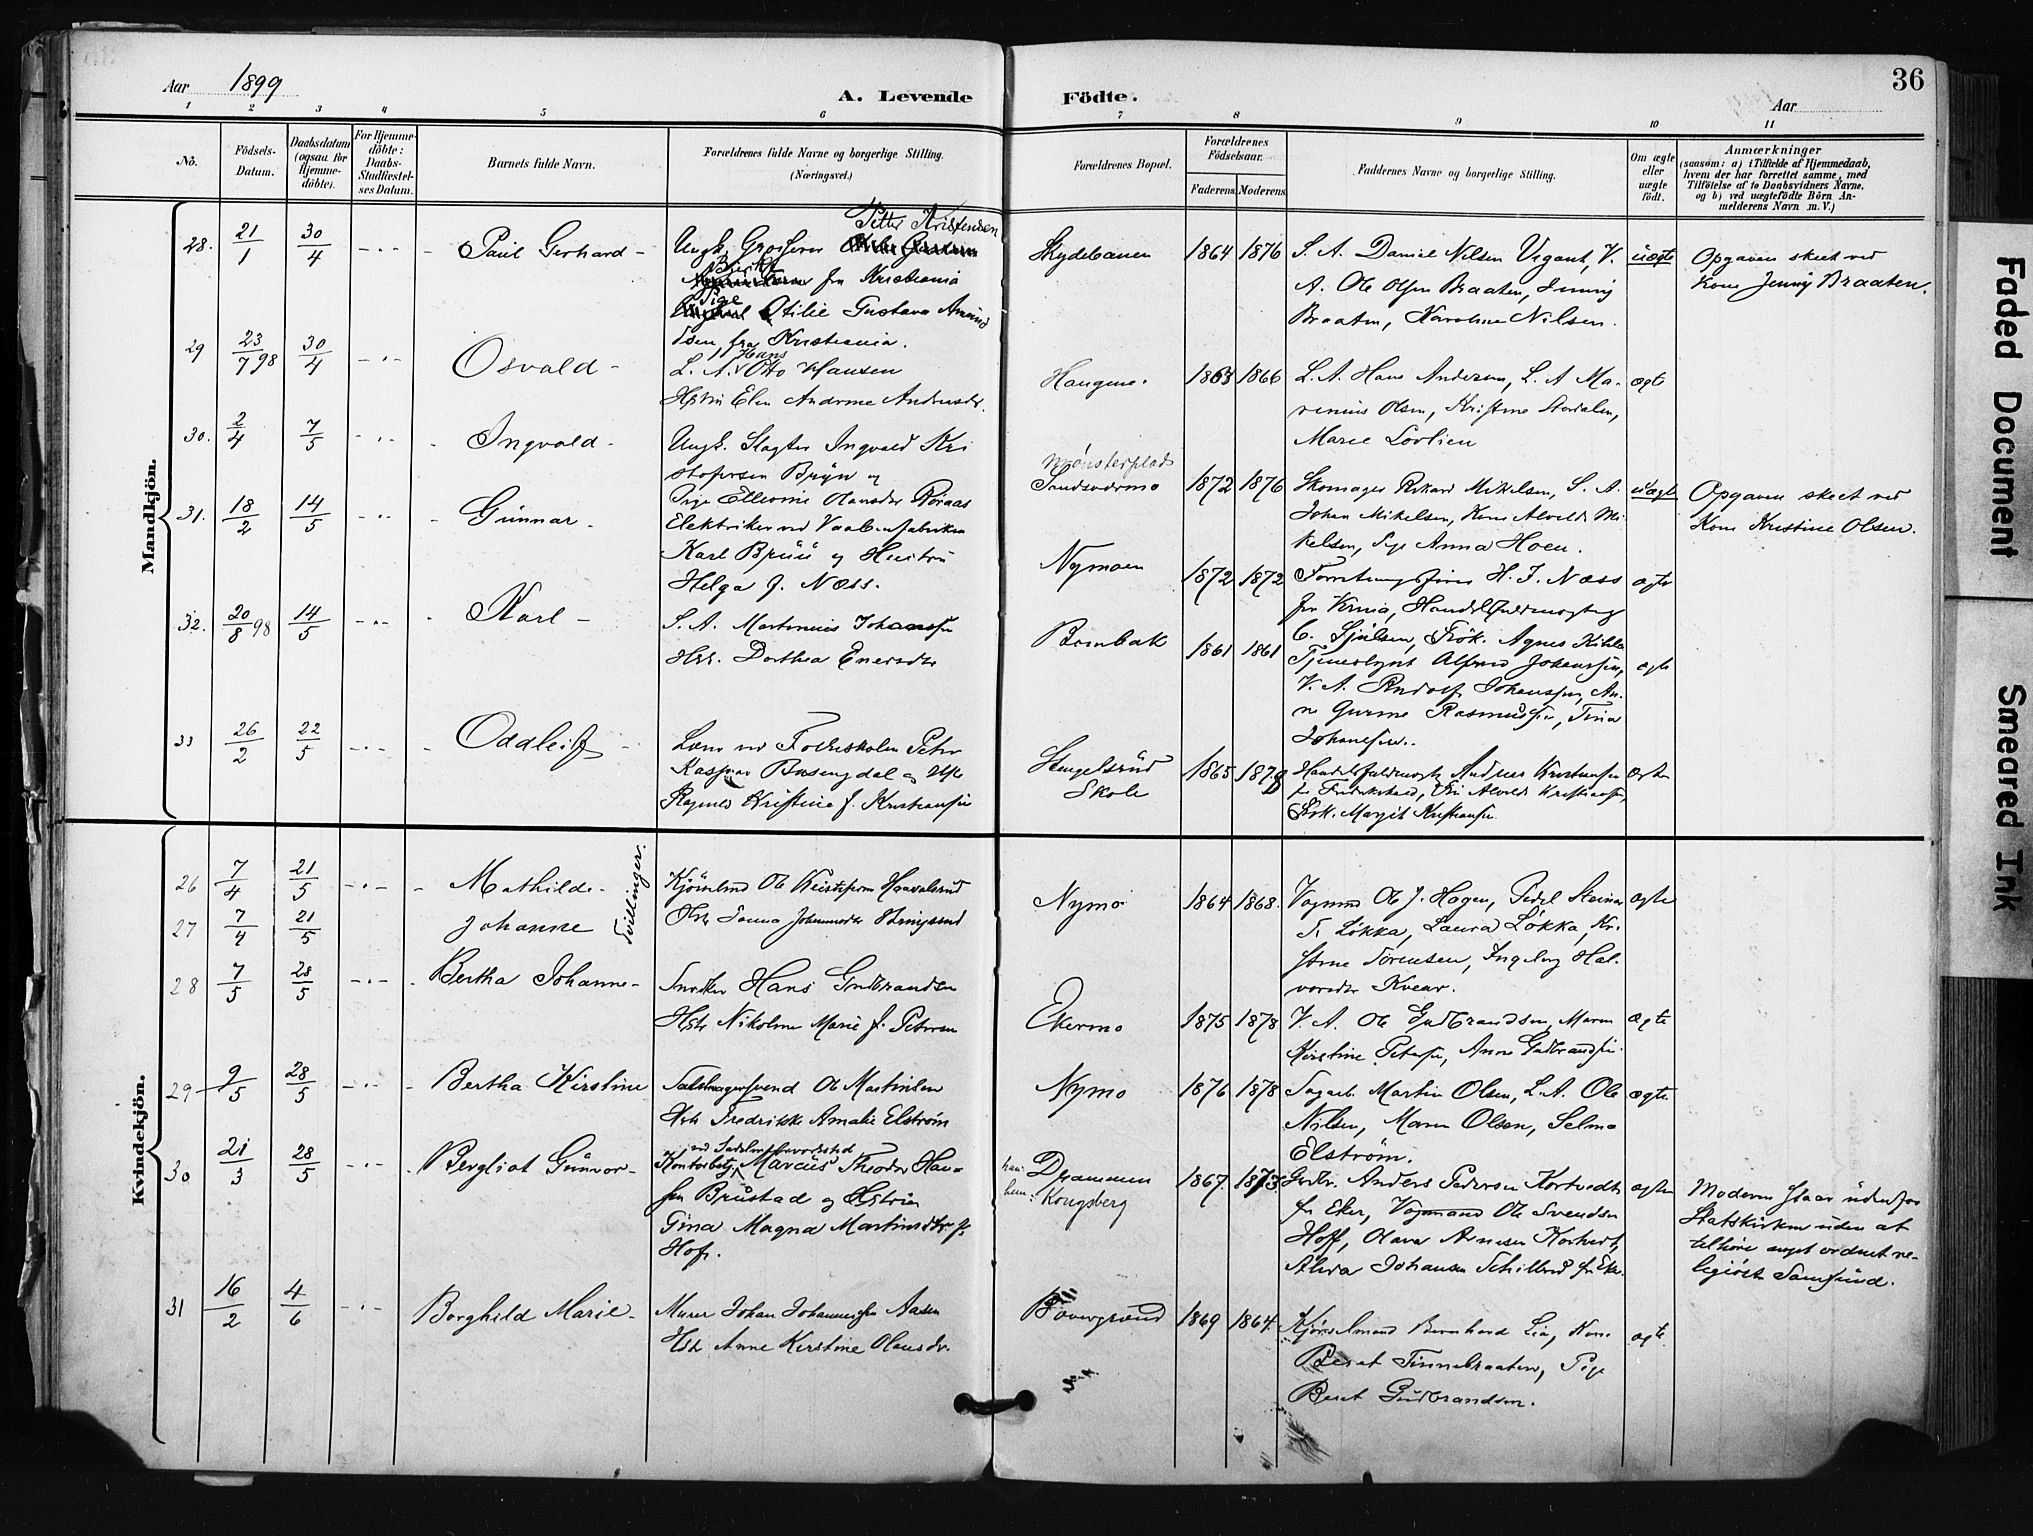 36
Aar 1899
A. Levende Födte.
Aar
1 2 3 4 5 6 7 8 9 10 11
No.
Födsels-
Datum.
Daabsdatum
(ogsaa for
Hjemme-
döbte).
For Hjemme-
döbte:
Daabs-
Stadfæstel-
ses Datum.
Barnets fulde Navn.
Forældrenes fulde Navne og borgerlige Stilling.
(Næringsvei.)
Forældrenes Bopæl.
Forældrenes
Födselsaar.
Faderens. Moderens.
Faddernes Navne og borgerlige Stilling.
Om ægte
eller
uægte
födt.
Anmærkninger
(saasom: a) i Tilfælde af Hjemmedaab,
hvem der har forrettet samme, med
Tilföielse af to Daabsvidners Navne,
og b) ved uægtefödte Börn An-
melderens Navn m. V.)
Mandkjön.
28. 21/1 30/4 Paul Gerhard
Petter Kristensen
Ungk. Grosserer
Birke
fra Kristiania
Pige
Otilie Gustava Amund
sen, fra Kristiania.
Skydebanen 1864 1876
S. A. Daniel Nilsen Vegant, V.
A. Ole Olsen Braaten, Jenny
Braaten, Karoline Nilsen.
uægte
Opgaven skeet ved
Kone Jenny Braaten.
29 23/7 98 30/4 Osvald
Hans
L. A. Otto Hansen
Hstru Elen Andrine Andersdr.
Haugmo. 1863 1866
L. A. Hans Andersen, L. A. Ma-
rinius Olsen, Kristine Stordalen,
Marie Lovlien
ægte
30. 2/4 7/5 Ingvald
Ungk. Slagter Ingvald Kri
stofersen Bryn og
Pige Ellevine Olausdr Røraas
Mønsterplads
Sandsværmo 1872 1876
Skomager Rikard Mikelsen, S. A.
Johan Mikelsen, Kone Alvilde Mi
kelsen, Pige Anna Hoen.
uægte
Opgaven skeet ved
Kone Kristine Olsen.
31. 18/2 14/5 Gunnar
Elektriker ved Vaabenfabriken
Karl Bruu og Hustru
Helga f. Næss.
Nymoen 1872 1872
Forretningsfører H. J. Næss
fra Krnia, Handelsfuldmægtig
C. Sjølsen, Frök. Agnes Kihle
ægte
32. 20/8 98 14/5 Karl
S. A. Martinius Johansen
Hstr. Dorthea Enersdtr
Bornbak 1861 1861
Tjenestegut Alfred Johansen,
V. A. Rudolf Johanssen, An-
ne Gurine Rasmussen, Tina
Johansen.
ægte
33 26/2 22/5 Oddleif
Lærer ved Folkeskolen Peter
Kasper Busengdal og Hstr
Ragna Kristine f. Kristiansen
Stengelsrud
Skole
1865 1878
Handelsfuldmægt. Andreas Kristiansen
fra Fredrikstad, Fru Alvilde Kristiansen,
Frök. Margit Kristiansen
ægte
Kvindekjön.
26 7/4 21/5 Mathilde
27 7/4 21/5 Johanne
Tvillinger.
Kjöremd Ole Kristofersen Haavalsrud
Hstr Sanna Johannesdtr
Nymo 1864 1868.
Vognmd Ole J. Hagen, Pedel Steinar
T. Løkka, Laura Løkka, Kr-
stine Sørensen, Ingeborg Hal-
vorsdtr Kvear.
ægte
28 7/5 28/5 Bertha Johanne
Snedker Hans Gudbrandsen
Hstr Nikoline Marie f. Petersen
Ekermo 1875 1878
V. A. Ole Gudbrandsen, Maren
Kirstine Petersen, Anne Gudbrandsen.
ægte
29 9/5 28/5 Bertha Kirstine
Sadelmagersvend Ole Martinsen
Hstr Fredrikke Amalie Elström
Nymo 1876 1878
Sagarb. Martin Olsen, L. A. Ole
Nilsen, Maren Olsen, Selma
Elström.
ægte
30 21/3 28/5 Bergliot Gunvor
Kontorbetj. Marcus Theodor Han-
sen Brustad og Hstru
Gina Magna Martinsdtr f.
Hof.
han: Drammen
hun: Kongsberg
1867. 1873.
Gbr. Anders Pedersen Kortvedt
fra Eker, Vognmand Ole Svendsen
Hoff, Olava Arnesen Kortvedt,
Alvida Johansen fra Eker
ægte
Moderen staar udenfor
Statskirken uden at
tilhøre noget ordnet re-
ligiöst Samfund.
31 16/2 4/6 Borghild Marie
Murer Johan Johannessen Aasen
Hstr Anne Kirstine Olausdr.
Bovergrend 1869 1864.
Kjöremand Bernhard Lia, Kone
Beret Tinnebraaten, Pige
Beret Gudbrandsen.
ægte
Faded Document
Smeared Ink